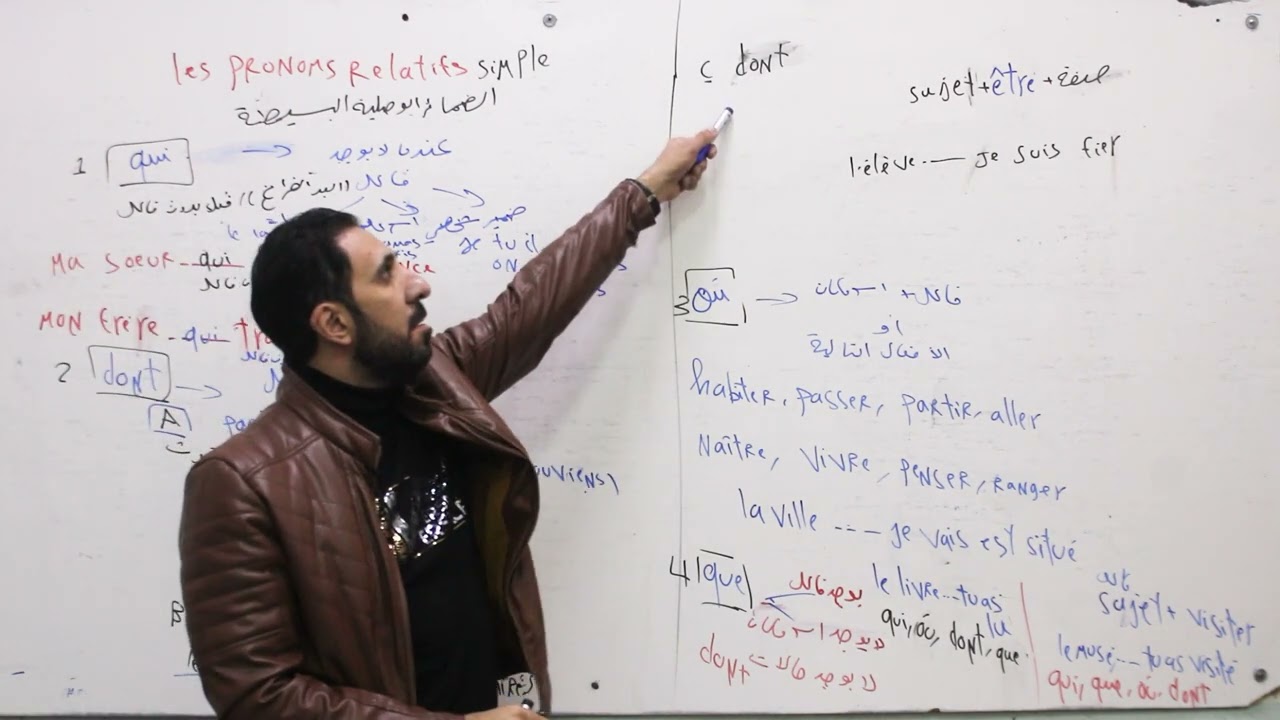 les PRONOMS Relatifs SIMPLE
الضمائر الوصلية البسيطة
1 qui → عندما لا يوجد
فاعل ((البدأ الفراغ)) قبل
ضمير شخصي
Je tu il
ON
Ma soeur--qui
MON frère--qui
2 dont →
A
ouviens)
B
ج dont
sujet+être+صفة
l'élève---je suis fier
3 où → فاعل + اسم مكان
أو
الأفعال التالية
habiter, passer, partir, aller
Naître, vivre, penser, ranger
la ville ---- je vais est situé
4 que بعدها فاعل
لا يوجد اسم مكان
لا يوجد حالات dont
le livre...tu as
lu
qui, où, dont, que
sujet + visiter
le musé---tu as visité
qui, que, où, dont